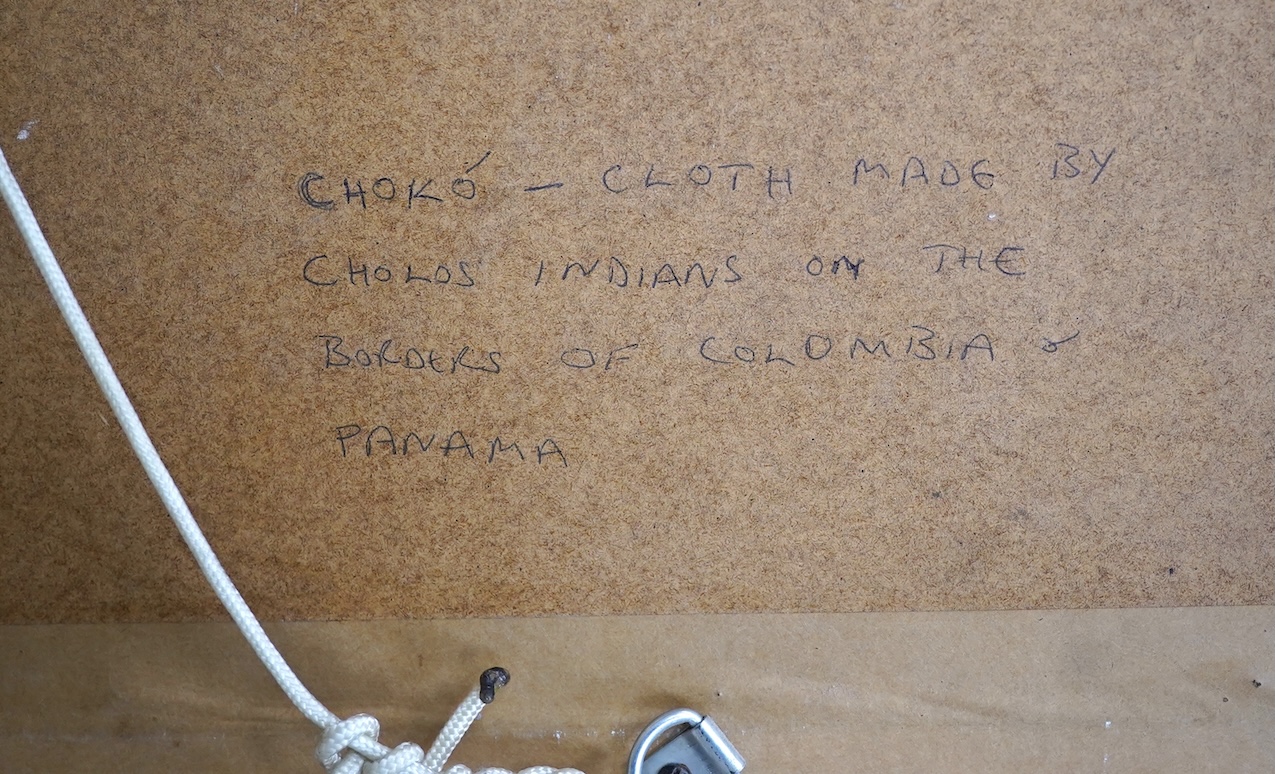 CHOKÓ – CLOTH MADE BY
CHOLOS INDIANS ON THE
BORDERS OF COLOMBIA &
PANAMA